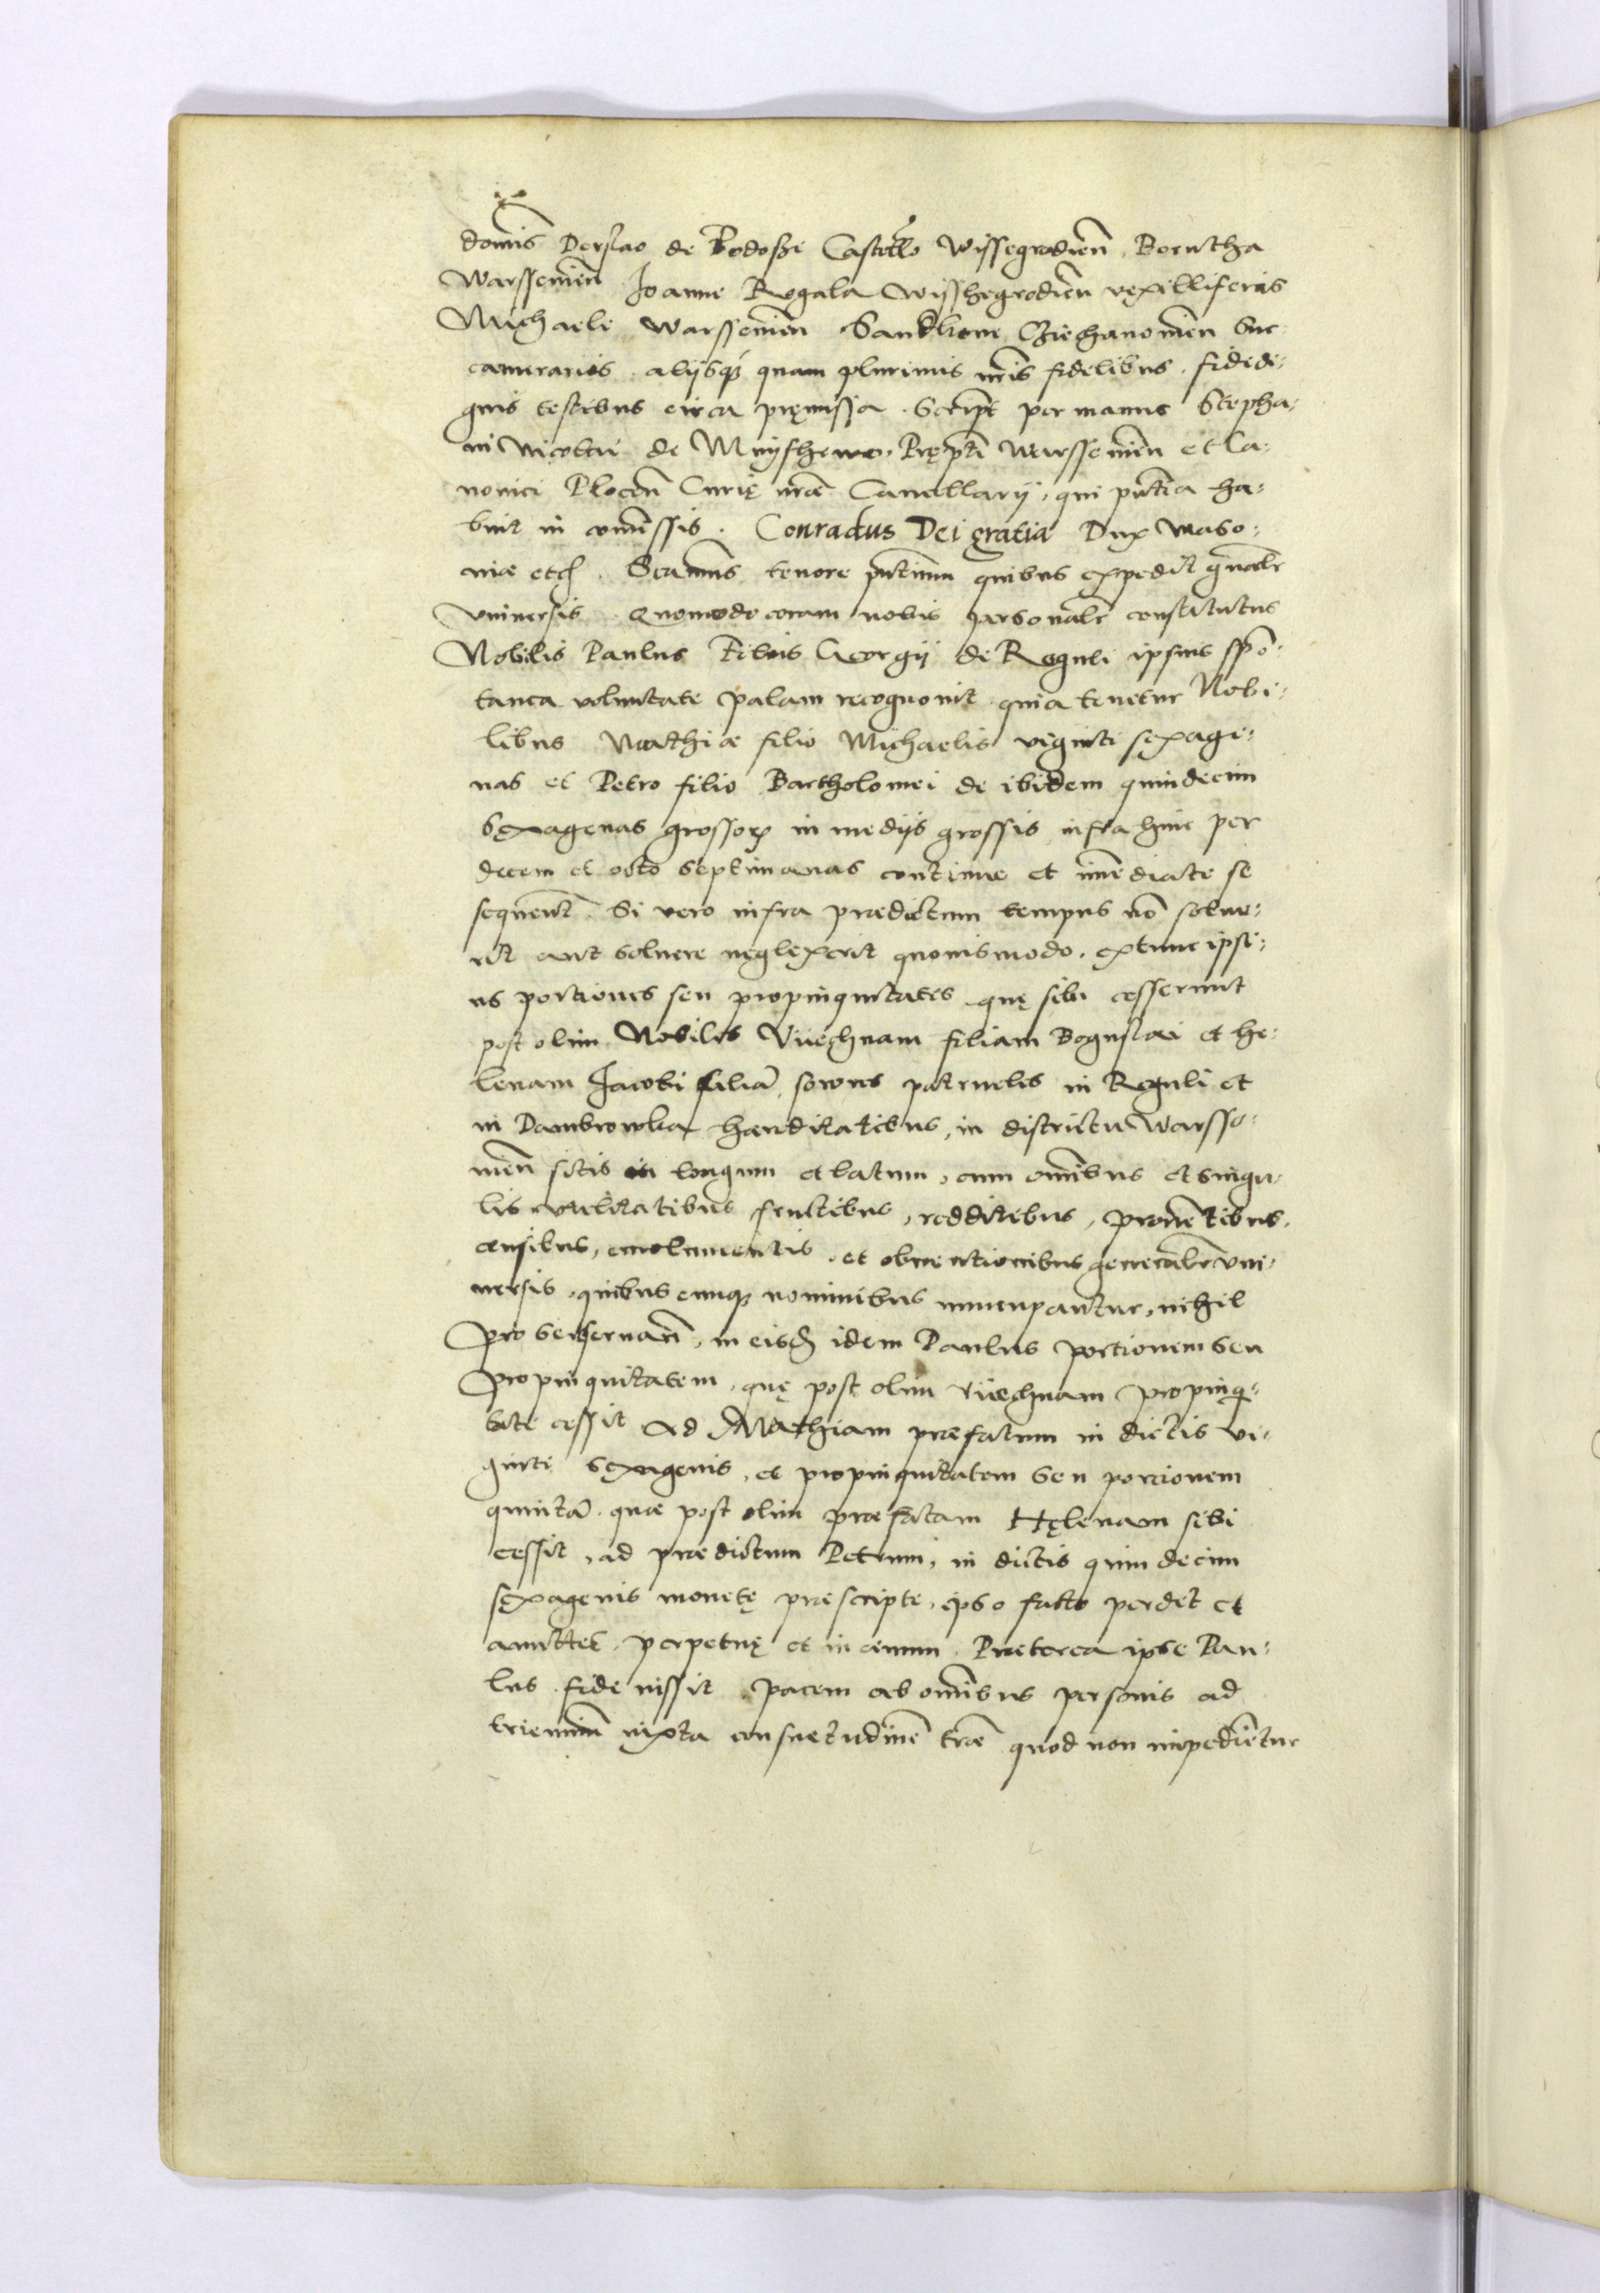 domis Derslao de Bodosze Castello Wyssegrodien̄ Borutha
Warssouien̄ Joanne Rogala Wyschegrodien̄ vexilliferis
Michaele Warssouien̄ Czieghanouien̄ Suc
camerarios alijsq quam plurimis nr̄is fidelibus . fidedi¬
gnis testibus circa pręmissa . Script per manus Stepha¬
ni Nicolai de Mnyschewo . Pręptī Warssouien̄ et Ca¬
nonici Plocen̄ Curię nr̄æ Cancellarij, qui pn̄tia ha¬
buit in com̄issis . Conradus Dei gratia Dux Maso¬
uiæ etc̄ . Scimus tenore pn̄tium quibus expedit gn̄alr
vniuersis . Quomodo coram nobis personalr constitutus
Nobilis Paulus Filius Georgij de Reguli ipsius spō¬
tanea voluntate palam recognouit quia tenetur Nobi¬
libus Mathiæ filio Michaelis viginti sexage¬
nas et Petro filio Bartholomei de ibidem quindecim
Sexagenas grossorꝝ in medijs grossis infra hinc per
decem et octo septimanas continue et im̄ediate se
sequent̄ . Si vero infra prædictum tempus nō solue¬
rit aut soluere neglexerit quouismodo . extunc ipsi¬
us portiones seu propinquitates quę sibi cesserunt
post olim Nobiles Viiechnam filiam Boguslai et he¬
lenam Jacobi filiā, sorores patrueles in Reguli et
in Dambrowka hæreditatibus, in districtu Warsso¬
uien̄ sitis in longum et latum, cum om̄ibus et singu¬
lis vtilitatibus fructibus, redditibus, prouētibus,
censibus, emolumentis . et obuentionibus generalr vni¬
uersis, quibuscunq nominibus nuncupantur, nihil
pro se reseruan̄, in eisd̄ idem Paulus portionem seu
propinquitatem, quę post olim Viiechnam propinq̄¬
tate cessit ad Mathiam præfatum in dictis vi¬
ginti sexagenis, et propinquitatem seu porcionem
quintā . quæ post olim præfatam Hęlenam sibi
cessit, ad prædictum Petrum, in dictis quindecim
sexagenis monetę præscripte, ipso facto perdet et
amittet, perpetuę et in æuum . Præterea ipse Pau¬
lus fideiussit pacem ab om̄ibus personis ad
triennium iuxta consuetudinē tr̄æ quod non impediētur